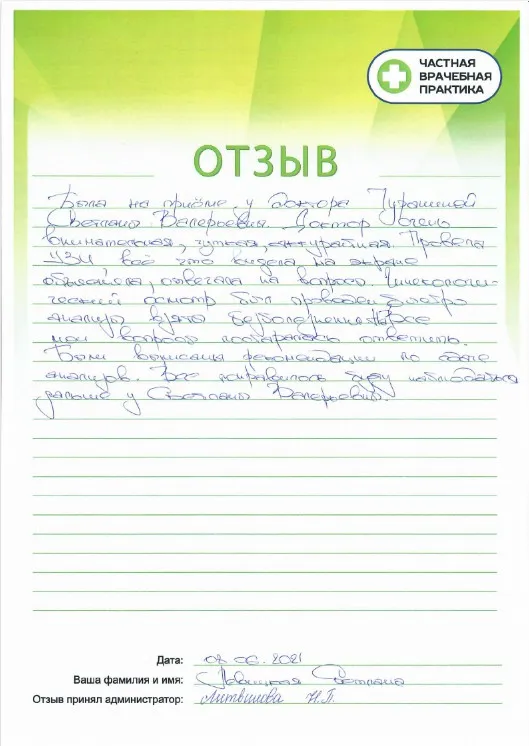 ЧАСТНАЯ
ВРАЧЕБНАЯ
ПРАКТИКА
ОТЗЫВ
Была на приёме у доктора
Светланы Валерьевны. Доктор очень
внимательная, чуткая, аккуратная. Провела
УЗИ всё что видела на экране
объясняла, отвечала на вопросы. Гинекологи-
ческий осмотр был проведен быстро
анализы взяты безболезненно. На все
мои вопросы постаралась ответить.
Были выписаны рекомендации по сдаче
анализов. Все понравилось буду наблюдаться
дальше у Светланы Валерьевны.
Дата: 08.06.2021
Ваша фамилия и имя: Светлана
Отзыв принял администратор: Литвинова Н.П.